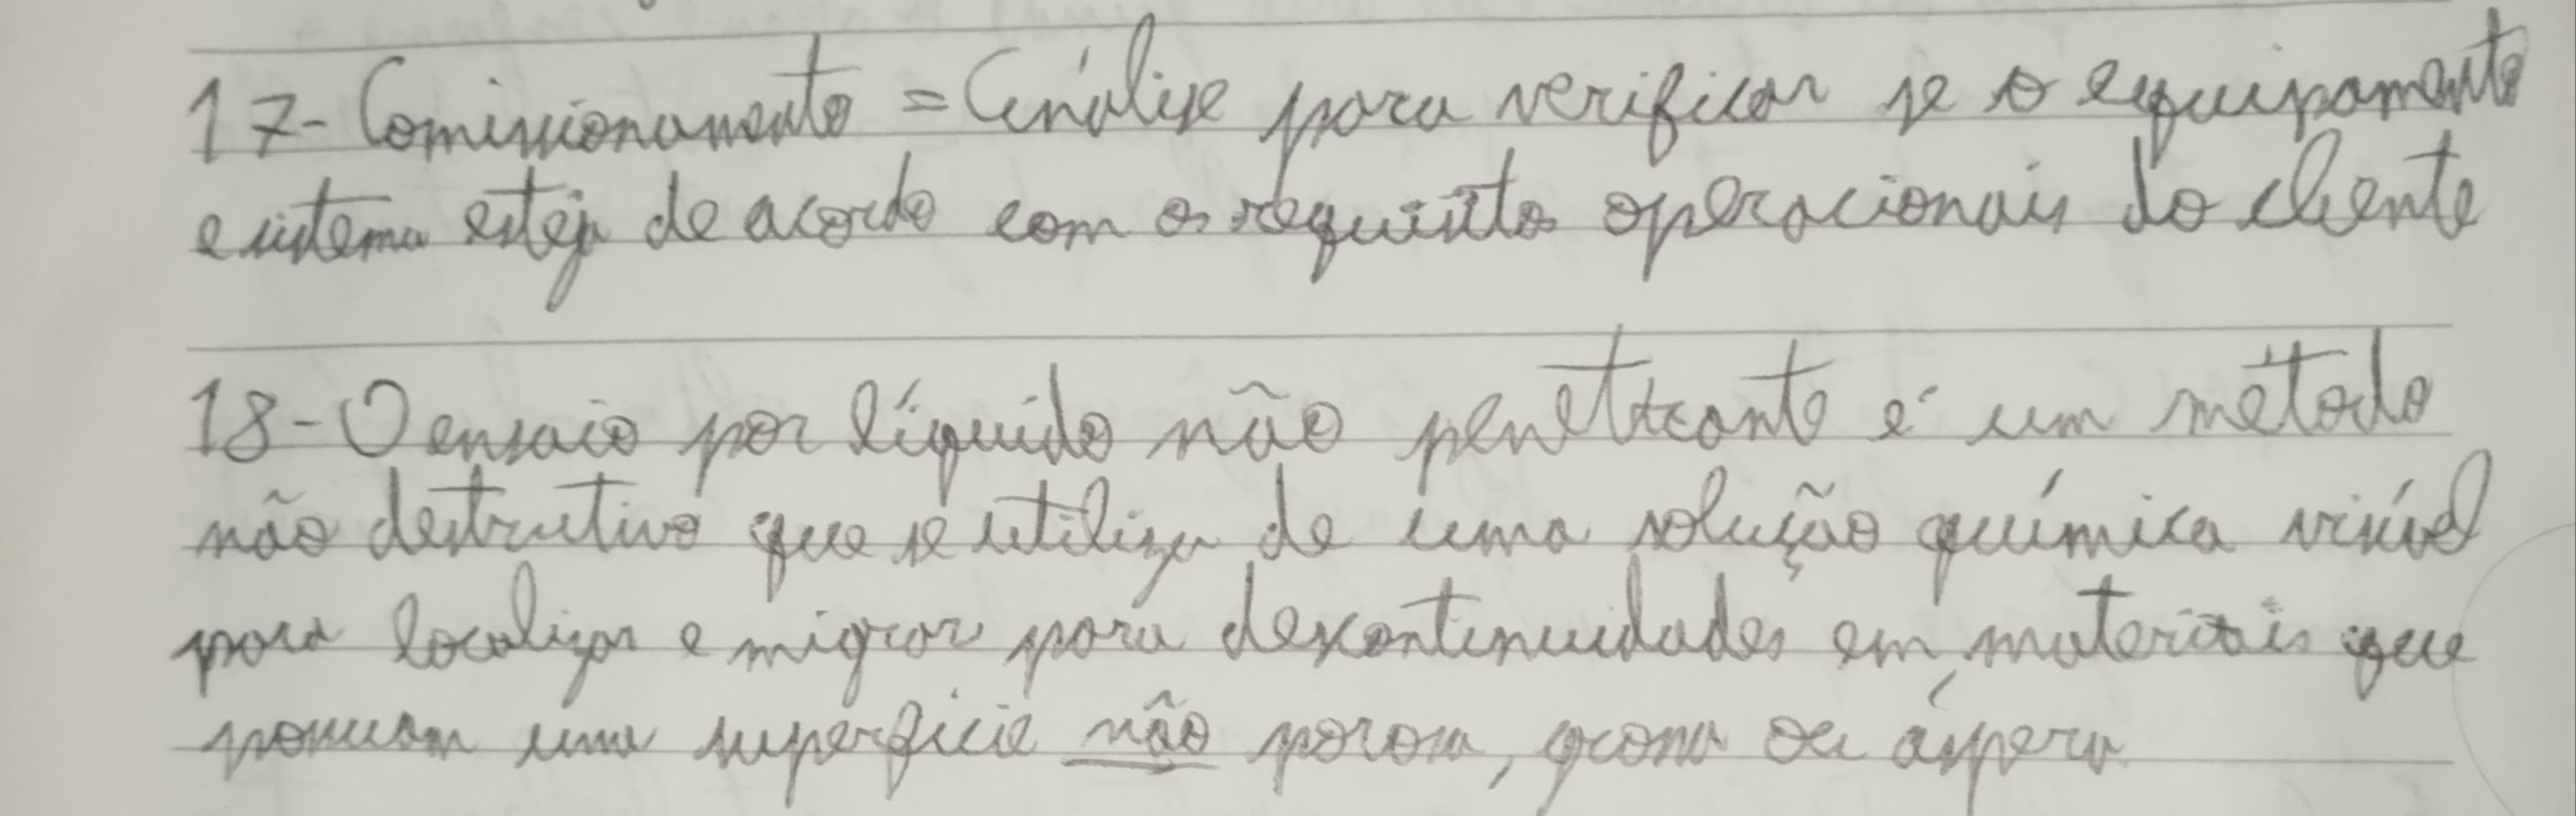 17- Comissionamento = Análise para verificar se o equipamento
e sistema esteja de acordo com os requisitos operacionais do cliente
18- O ensaio por líquido não penetrante é um método
não destrutivo que se utiliza de uma solução química visível
para localizar e migrar para descontinuidades em materiais que
possuam uma superfície não porosa, grossa ou áspera